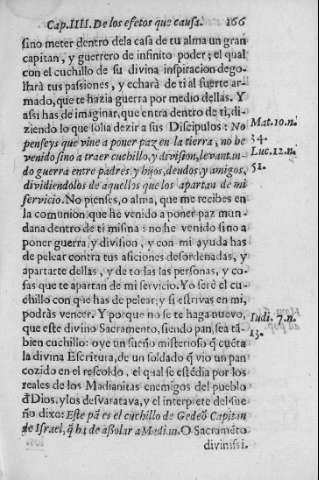 Cap. IIII. De los efetos que causa. 266
sino meter dentro dela casa de tu alma un gran
capitan, y guerrero de infinito poder; el qual
con el cuchillo de su divina inspiracion dego-
llarà tus passiones, y echarà de ti al fuerte ar-
mado, que te hazia guerra por medio dellas. Y
assi has de imaginar, que entra dentro de ti, di-
ziendo lo que solia dezir a sus Discipulos: No
penseys que vine a poner paz en la tierra, no he
venido sino a traer cuchillo, y division, levantan-
do guerra entre padres y hijos, deudos, y amigos,
dividiendolos de aquellos que los apartan de mi
servicio. No pienses, o alma, que me recibes en
la comunion que he venido a poner paz mun-
dana dentro de ti misma: no he venido sino a
poner guerra, y division, y con mi ayuda has
de pelear contra tus aficiones desordenadas, y
apartarte dellas, y de todas las personas, y co-
sas que te apartan de mi servicio. Yo serè el cu-
chillo con que has de pelear, y si estrivas en mi,
podràs vencer. Y porque no se te haga nuevo,
que este divino Sacramento, siendo pan, sea tã-
bien cuchillo: oye un sueño misterioso q̃ cuẽta
la divina Escritura, de un soldado q̃ viò un pan
cozido en el rescoldo, el qual se estẽdia por los
reales de los Madianitas enemigos del pueblo
đ Dios, y los desvaratava, y el interprete del sue
ño dixo: Este pã es el cuchillo de Gedeõ Capitan
de Israel, q̃ ha de assolar a Median. O Sacramẽto
divinissi.
Mat. 10. n.
34.
Luc. 12. n.
51.
Iudi. 7. n.
13.